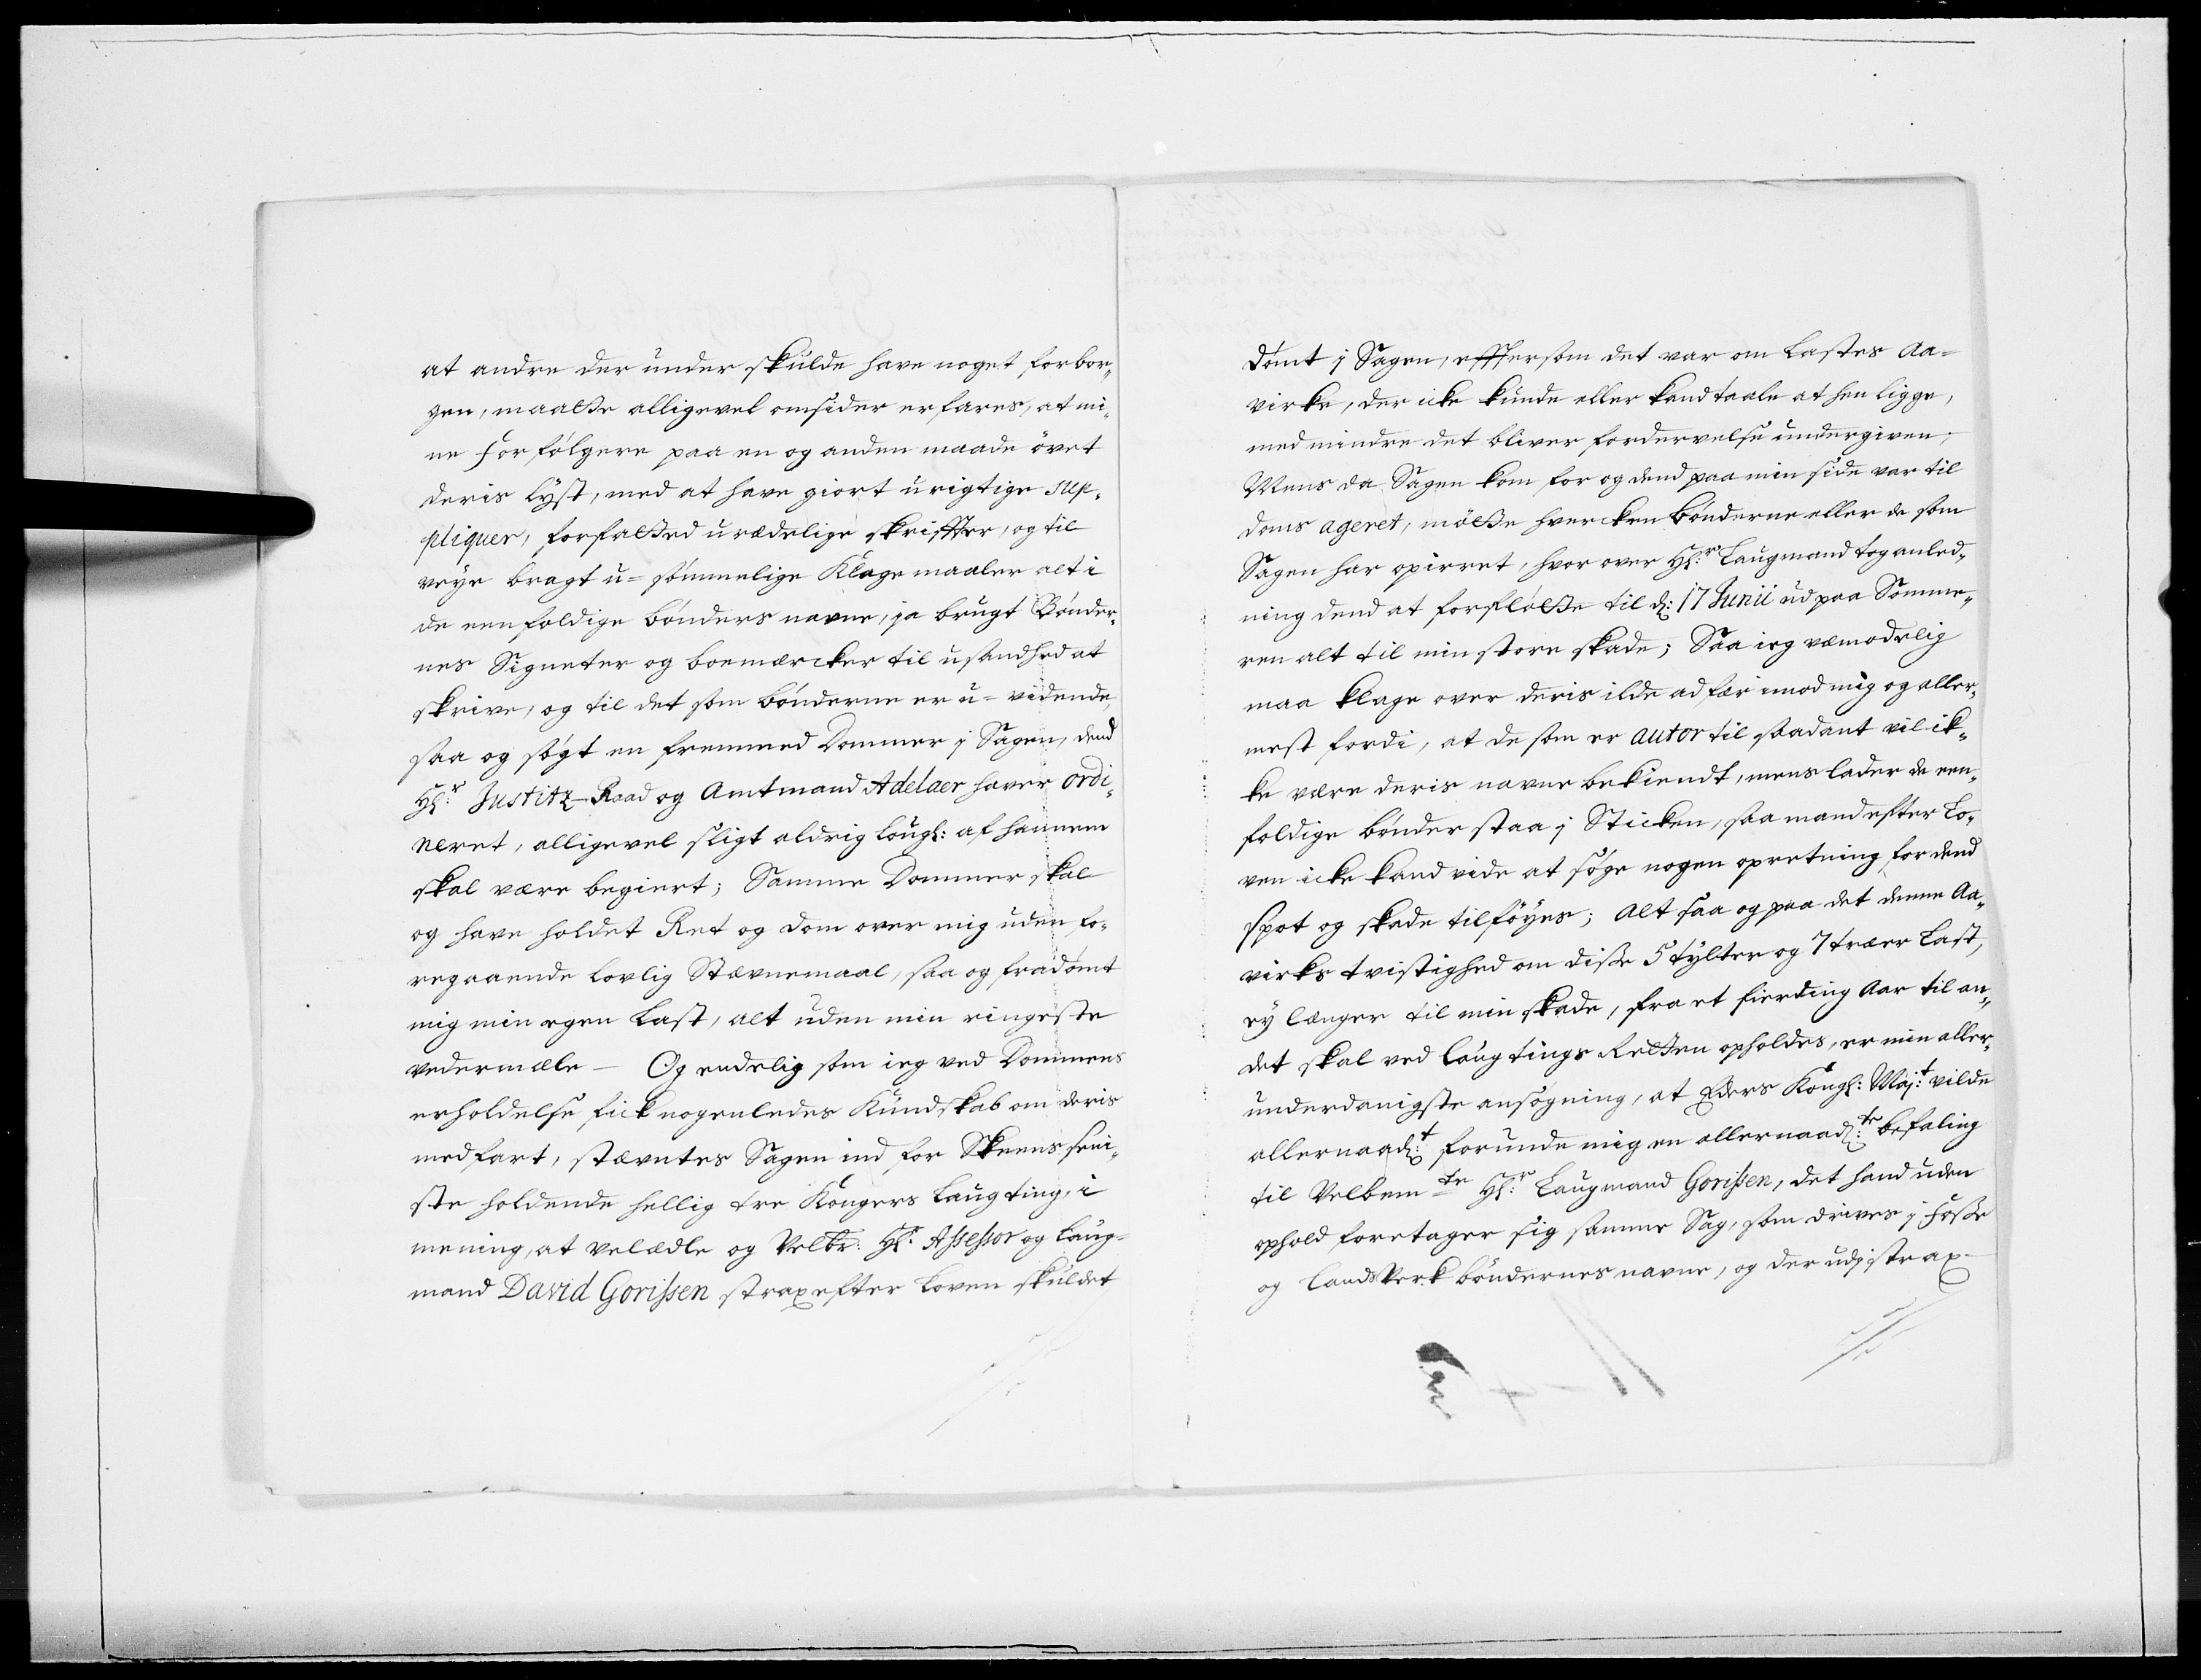 at andre der under skulde have noget forbor¬
gen, maatte alligevel omsider erfares, at mi¬
ne forfølgere paa en og anden maade övet
deris Lyst, med at have giort urigtige sup¬
pliquer, forfatted urædelige skriffter, og til
veye bragt u-sömmelige Klagemaaler alt i
de eenfoldige bönders navne, ja brugt Bönder¬
nes Signeter og boemærcker til usandhed at
skrive, og til det som bönderne er u-vidende,
saa og søgt en fremmed Dommer j Sagen, dend
Hr: Justitz-Raad og Amtmand Adelaer haver ordi¬
neret, alligevel sligt aldrig lougl: af hannem
skal være begiert; Samme Dommer skal
og have holdet Ret og dom over mig uden fo¬
regaaende lovlig Stævnemaal, saa og fradömt
mig min egen Last, alt uden min ringeste
vedermæle - Og endelig som ieg ved Dommens
erholdelse fick nogenledes Kundskab om deris
medfart, stævntes Sagen ind for Skeens seni¬
ste holdende hellig tre Kongers Laugting, i
mening, at velædle og Velbr: Hr. Assessor og Laug¬
mand David Gorissen strax efter Loven skuldet
dömt j Sagen, efftersom det var om Lastes Aa¬
virke, der icke kunde eller kand taale at hen ligge,
med mindre det bliver fordervelse undergiven;
Mens da Sagen kom for og dend paa min side var til
doms ageret, mötte hvercken Bönderne eller de som
Sagen har opirret, hvor over Hr: Laugmand tog anled¬
ning dend at forfløtte til d: 17 Junii ud paa Somme¬
ren alt til min store skade; Saa ieg væmodelig
maa klage over deris ilde adfær imod mig og aller¬
mest fordi, at de som er autor til saadant vil ik¬
ke være deris navne bekiendt, mens lader de een¬
foldige bönder staa j Sticken, saa mand efter Lo¬
ven icke kand vide at söge nogen opretning for dend
spot og skade tilföyes; Alt saa og paa det denne Aa¬
virks tvistighed om disse 5 tylter og 7 træer Last,
ey længer til min skade, fra et fierding Aar til an¬
det skal ved laugtings Retten opholdes, er min aller¬
underdanigste ansögning, at Eders Kongl: Maj:t vilde
allernaad:t forunde mig en allernaad:te befaling
til Velbemte Hr: Laugmand Gorissen, det hand uden
ophold foretager sig samme Sag, som drives j Fosse
og Landsverk böndernes navne, og der udj strax